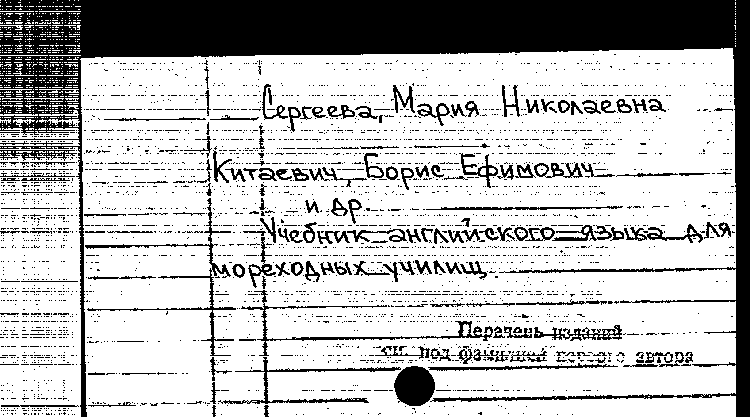 Сергеева, Мария Николаевна
Китаевич, Борис Ефимович
и др.
Учебник английского языка для
мореходных училищ.
Перечень изданий
см. под фамилией первого автора